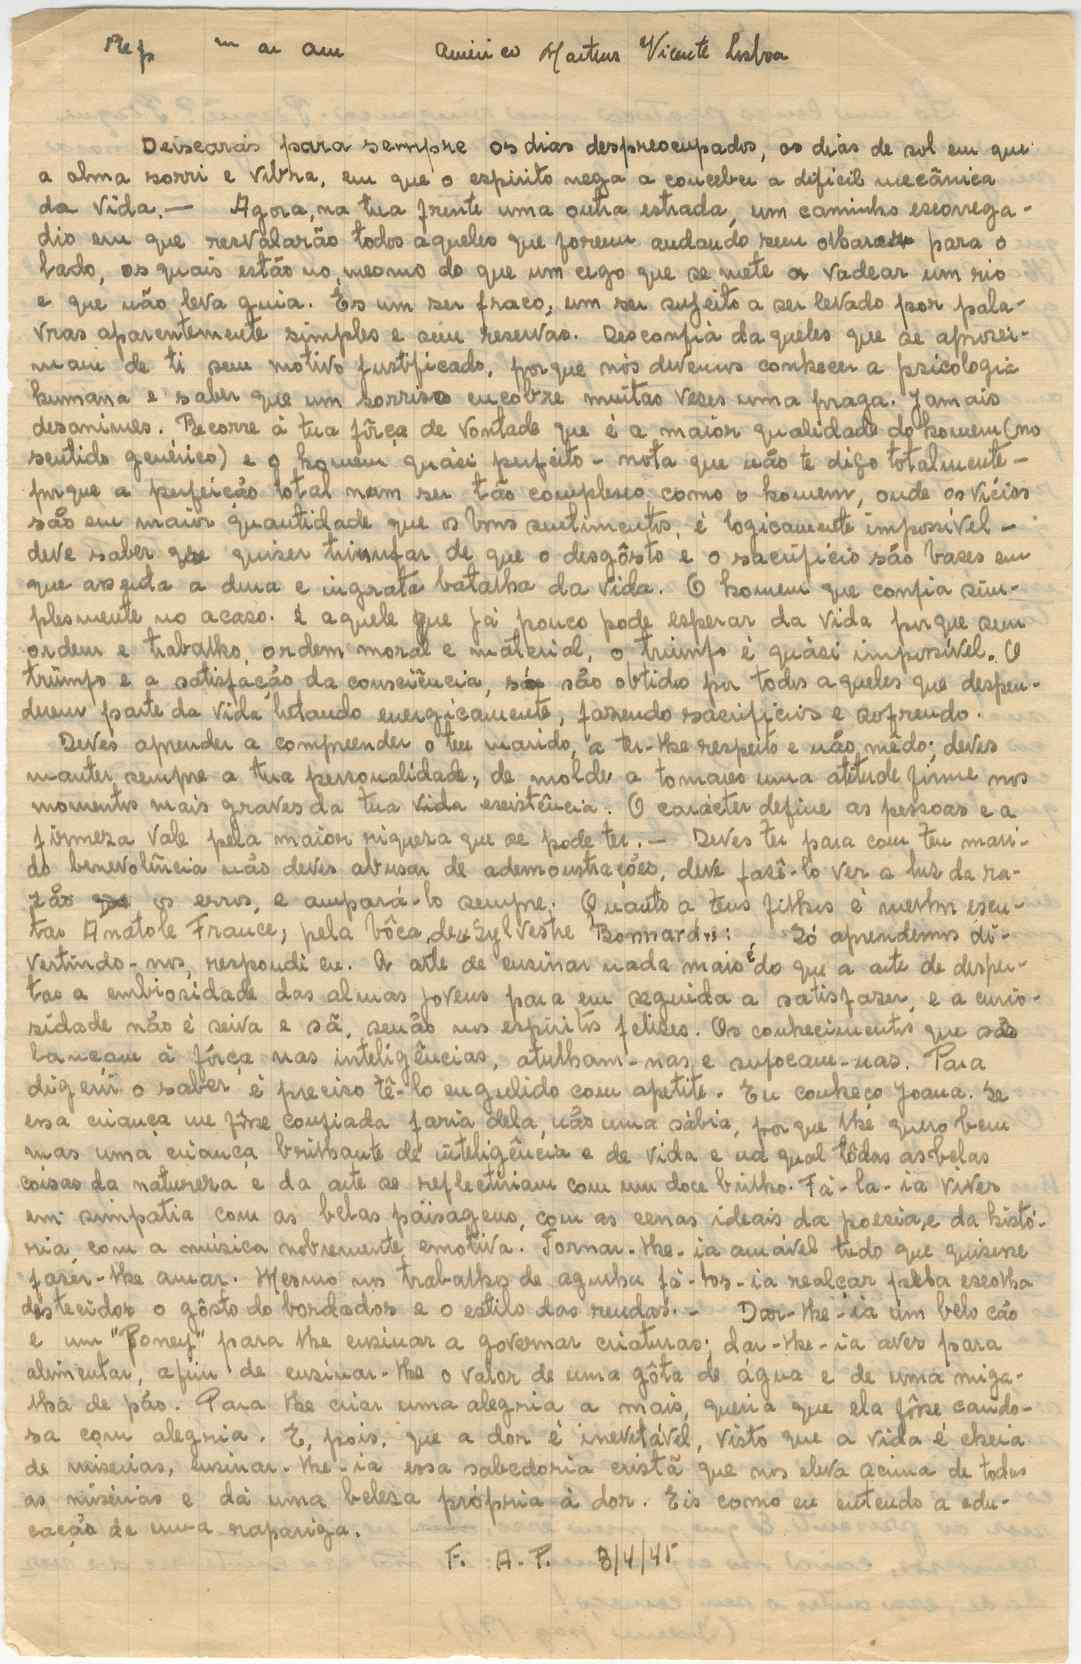 Rep m ar am Américo Martins Vicente Lisboa
Deixarás para sempre os dias despreocupados, os dias de sol em que
a alma sorri e vibra, em que o espirito nega a conceber a dificil mecânica
da vida. — Agora, na tua frente uma outra estrada, um caminho escorrega-
dio em que resvalarão todos aqueles que forem andando sem olharem para o
lado, os quais estão no mesmo do que um cego que se mete a vadear um rio
e que não leva guia. És um ser fraco, um ser sujeito a ser levado por pala-
vras aparentemente simples e sem reservas. Desconfia daqueles que se aproxi-
mam de ti sem motivo justificado, porque nós devemos conhecer a psicologia
humana e saber que um sorriso encobre muitas vezes uma praga. Jamais
desanimes. Recorre à tua fôrça de vontade que é a maior qualidade do homem (no
sentido genérico) e o homem quási perfeito - nota que não te digo totalmente -
porque a perfeição total num ser tão complexo como o homem, onde os vícios
são em maior quantidade que os bons sentimentos, é logicamente impossível -
deve saber que quiser triunfar de que o desgôsto e o sacrifício são bases em
que assenta a dura e ingrata batalha da vida. O homem que confia sim-
plesmente no acaso. é aquele que já pouco pode esperar da vida porque sem
ordem e trabalho, ordem moral e material, o triunfo é quási impossível. O
triunfo e a satisfação da consciência, só são obtidos por todos aqueles que despen-
derem parte da vida lutando energicamente, fazendo sacrifícios e sofrendo.
Deves aprender a compreender o teu marido, a ter-lhe respeito e não mêdo; deves
manter sempre a tua personalidade, de molde a tomares uma atitude firme nos
momentos mais graves da tua vida existência. O carácter define as pessoas e a
firmeza vale pela maior riqueza que se pode ter. — Deves ter para com teu mari-
do benevolência não deves abusar de ademonstrações, deve fazê-lo ver a luz da ra-
zão os erros, e ampará-lo sempre. Quanto a teus filhos é melhor escu-
tar Anatole France, pela bôca de Sylvestre Bonnard: Só aprendemos di-
vertindo-nos, respondi eu. A arte de ensinar nada mais é do que a arte de desper-
tar a embiosidade das almas jovens para em seguida a satisfazer, e a curio-
sidade não é seiva e sã, senão nos espíritos felizes. Os conhecimentos que são
lançam à fôrça nas inteligências, atulham-nas e sufocam-nas. Para
digerir o saber é preciso tê-lo engulido com apetite. Eu conheço Joana. Se
essa criança me fôsse confiada faria dela, não uma sábia, porque lhe quero bem
mas uma criança brilhante de inteligência e de vida e na qual tôdas as belas
coisas da natureza e da arte se reflectiriam com um doce brilho. Fá-la-ia viver
em simpatia com as belas paisagens, com as cenas ideais da poesia, e da histó-
ria, com a música nobremente emotiva. Tornar-lhe-ia amável tudo que quisesse
fazer-lhe amar. Mesmo nos trabalhos de agulha fá-los-ia realçar pela escolha
dos tecidos o gôsto do bordados e o estilo das rendas. - Dar-lhe-ia um belo cão
e um "Poney" para lhe ensinar a governar criaturas; dar-lhe-ia aves para
alimentar, afim de ensinar-lhe o valor de uma gôta de água e de uma miga-
lha de pão. Para lhe criar uma alegria a mais, queria que ela fôsse caridо-
sa com alegria. E, pois, que a dor é inevitável, visto que a vida é cheia
de misérias, ensinar-lhe-ia essa sabedoria cristã que nos eleva acima de todas
as misérias e dá uma beleza própria à dor. Eis como eu entendo a edu-
cação de uma rapariga.
F. A. P. 3/4/45